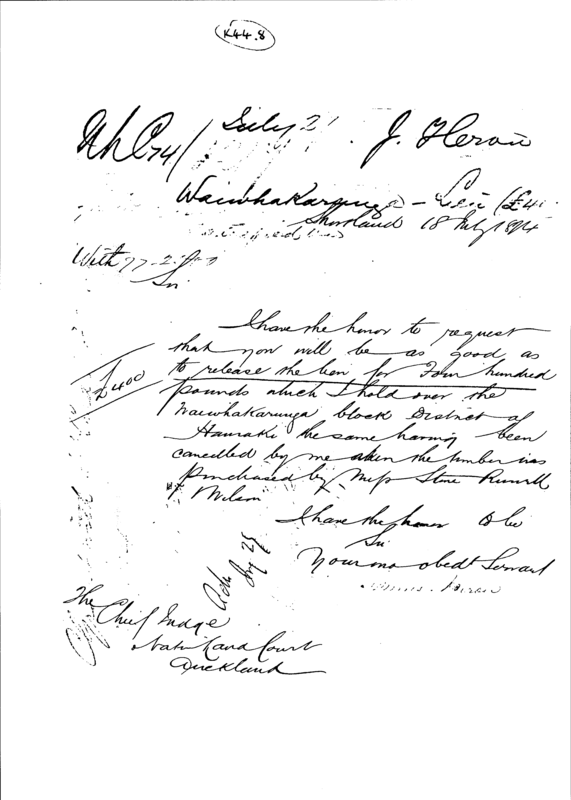 K44.8
July 21 J. Heron
Waiwhakarunga - Lein (£4
Shortland 18 July 1874
With 77-2
Sir
I have the honor to request
that you will be as good as
to release the lien for Four hundred
£400
pounds which I hold over the
Waiwhakarunga block District of
Hauraki the same having been
cancelled by me when the timber was
purchased by Messrs Stone Russell
& Wilson
I have the honor to be
Sir
Your mo obedt Servant
The
Chief Judge
Native Land Court
Auckland